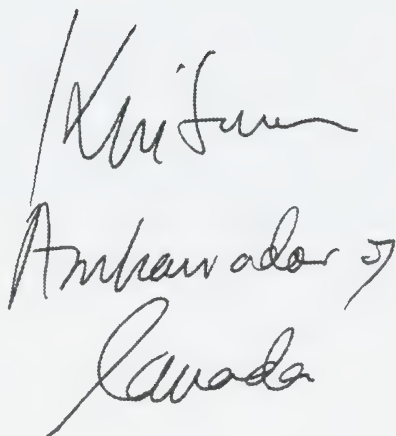 Ambassador of
Canada